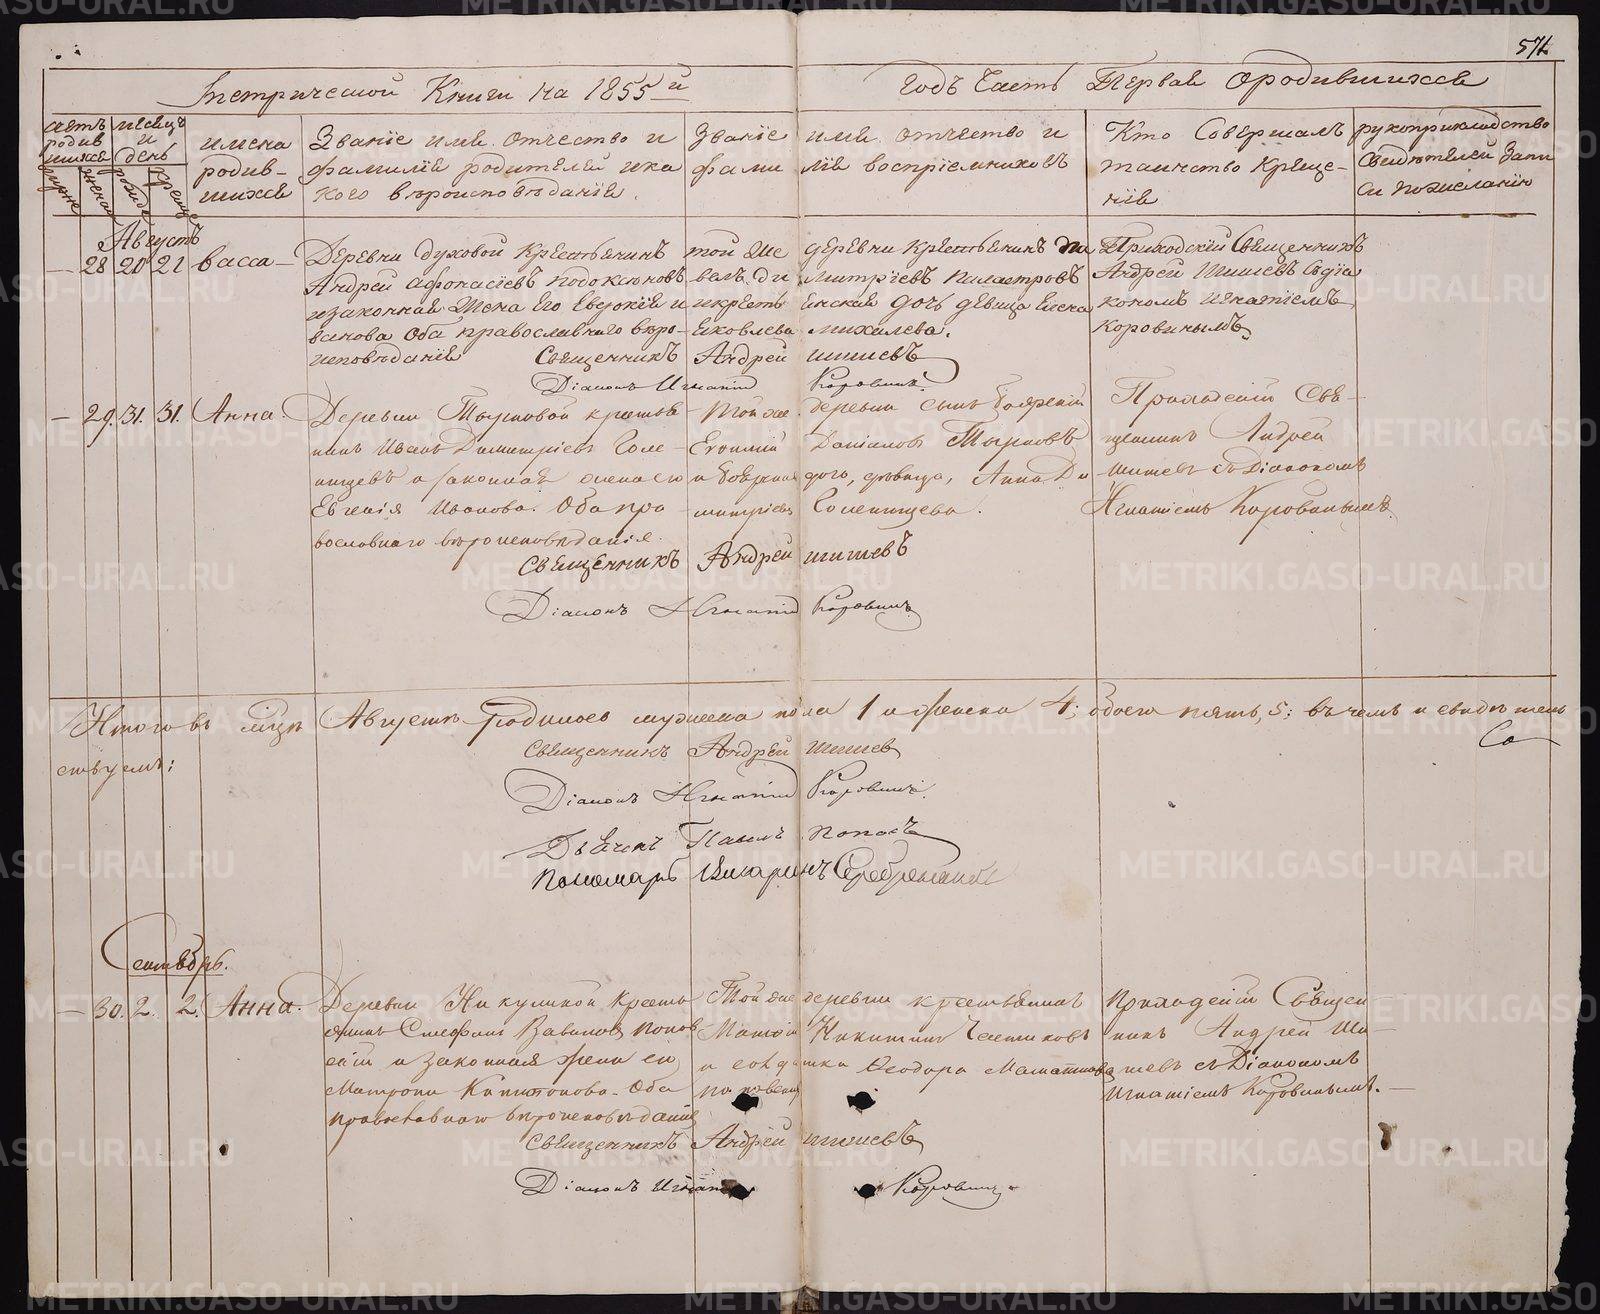 571
Метрической Книги на 1855-й годъ Часть Первая о родившихся
счетъ родив шихся
муж. женск.
месяцъ и день
рожде. креще.
имена родив- шихся
Званіе имя отчество и фамиліе родителей и ка кого вѣроисповѣданія
Званіе имя отчество и
фами ліе воспріемниковъ
Кто Совершалъ таинство Креще- нія
рукоприкладство Свидѣтелей Запи си по желанію
Августъ
— 28 20 21 Васса —
Деревни Духовой Крестьянинъ
Андрей Афонасіевъ
и законная Жена Его Евдокія И
ванова Оба православнаго вѣро-
исповѣданія
той же деревни Крестьянинъ
Ди митріевъ
и крестьянская дочь девица Елена
Яковлева Михалева.
Приходскій Священникъ
Андрей Шишевъ Съ Діа
кономъ Игнатіемъ
Коровинымъ
Священникъ Андрей Шишевъ
Діаконъ Игнатій Коровинъ.
— 29. 31. 31. Анна.
Деревни Тырковой крестья
нинъ Иванъ Димитріевъ Голе-
нищевъ и законная жена его
Евгенія Иванова. Оба пра
вославнаго вѣроисповѣданія.
Той же деревни сынъ боярскій
Данілов Тырковъ
и боярская дочь, дѣвица, Анна Ди
митріева Голенищева.
Приходскій Свя-
щенникъ Андрей
Шишевъ съ Діакономъ
Игнатіемъ Коровинымъ.
Священникъ Андрей Шишевъ
Діаконъ Игнатій Коровинъ
Итого въ мцѣ Августѣ родилось мужеска пола 1 и женска 4; обоего пять, 5; въ чемъ и свидѣтель
ствуемъ:
Со
Священникъ Андрей Шишев
Діаконъ Игнатій Коровинъ.
Дьячекъ Павелъ Поповъ
Пономарь Серебренниковъ
Сентябрь.
— 30. 2. 2. Анна.
Деревни Никулиной Кресть
янинъ Стефанъ Вавиловъ Попов
скій и законная жена его
Матрона Капитонова. Оба
православнаго вѣроисповѣданія
Той же деревни крестьянинъ
Никитинъ Чистиковъ
и солдатка Ѳеодора
Приходскій Священ
никъ Андрей Ши-
шевъ съ Діакономъ
Игнатіемъ Коровинымъ. —
Священникъ Андрей Шишевъ
Діаконъ Игнатій Коровинъ
METRIKI.GASO-URAL.RU